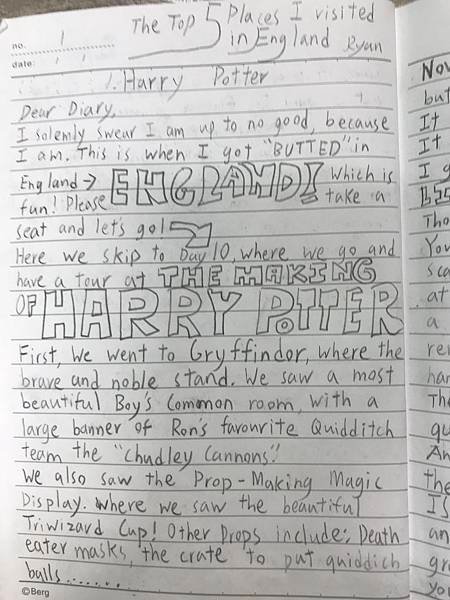 The Top 5 Places I visited
in England Ryan
no. 1
date:
1. Harry Potter
Dear Diary,
I solemly swear I am up to no good, because
I am. This is when I got "BUTTED" in
England → ENGLAND! which is
fun! Please take a
seat and let's go!
Here we skip to Day 10, where we go and
have a tour at THE MAKING
OF HARRY POTTER
First, We went to Gryffindor, where the
brave and noble stand. We saw a most
beautiful Boy's Common room, with a
large banner of Ron's favourite Quidditch
team the "Chudley Cannons".
We also saw the Prop-Making Magic
Display. Where we saw the beautiful
Triwizard Cup! Other Props include: Death
eater masks, the crate to put quiddich
balls.......
©Berg
Nov
but
It
It
I g
Tho
You
sca
at
a
rev
har
The
qu
An
the
Is
an
gr
you